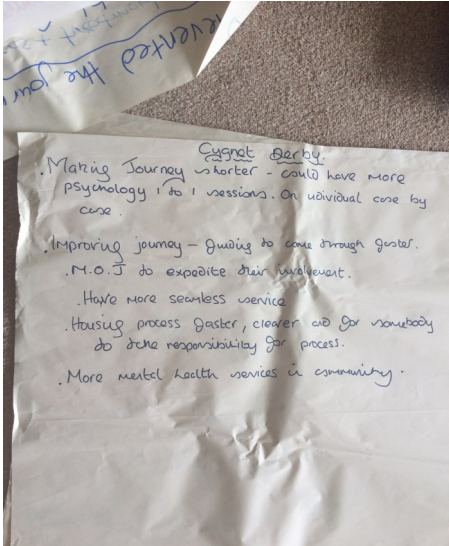 evented the jour
Cygnet Derby.
. Making Journey shorter - could have more
psychology 1 to 1 sessions. On individual case by
case.
. Improving journey - funding to come through faster.
. M.O.J to expedite their involvement.
. Have more seamless service
. Housing process faster, clearer and for somebody
to take responsibility for process.
. More mental health services in community.